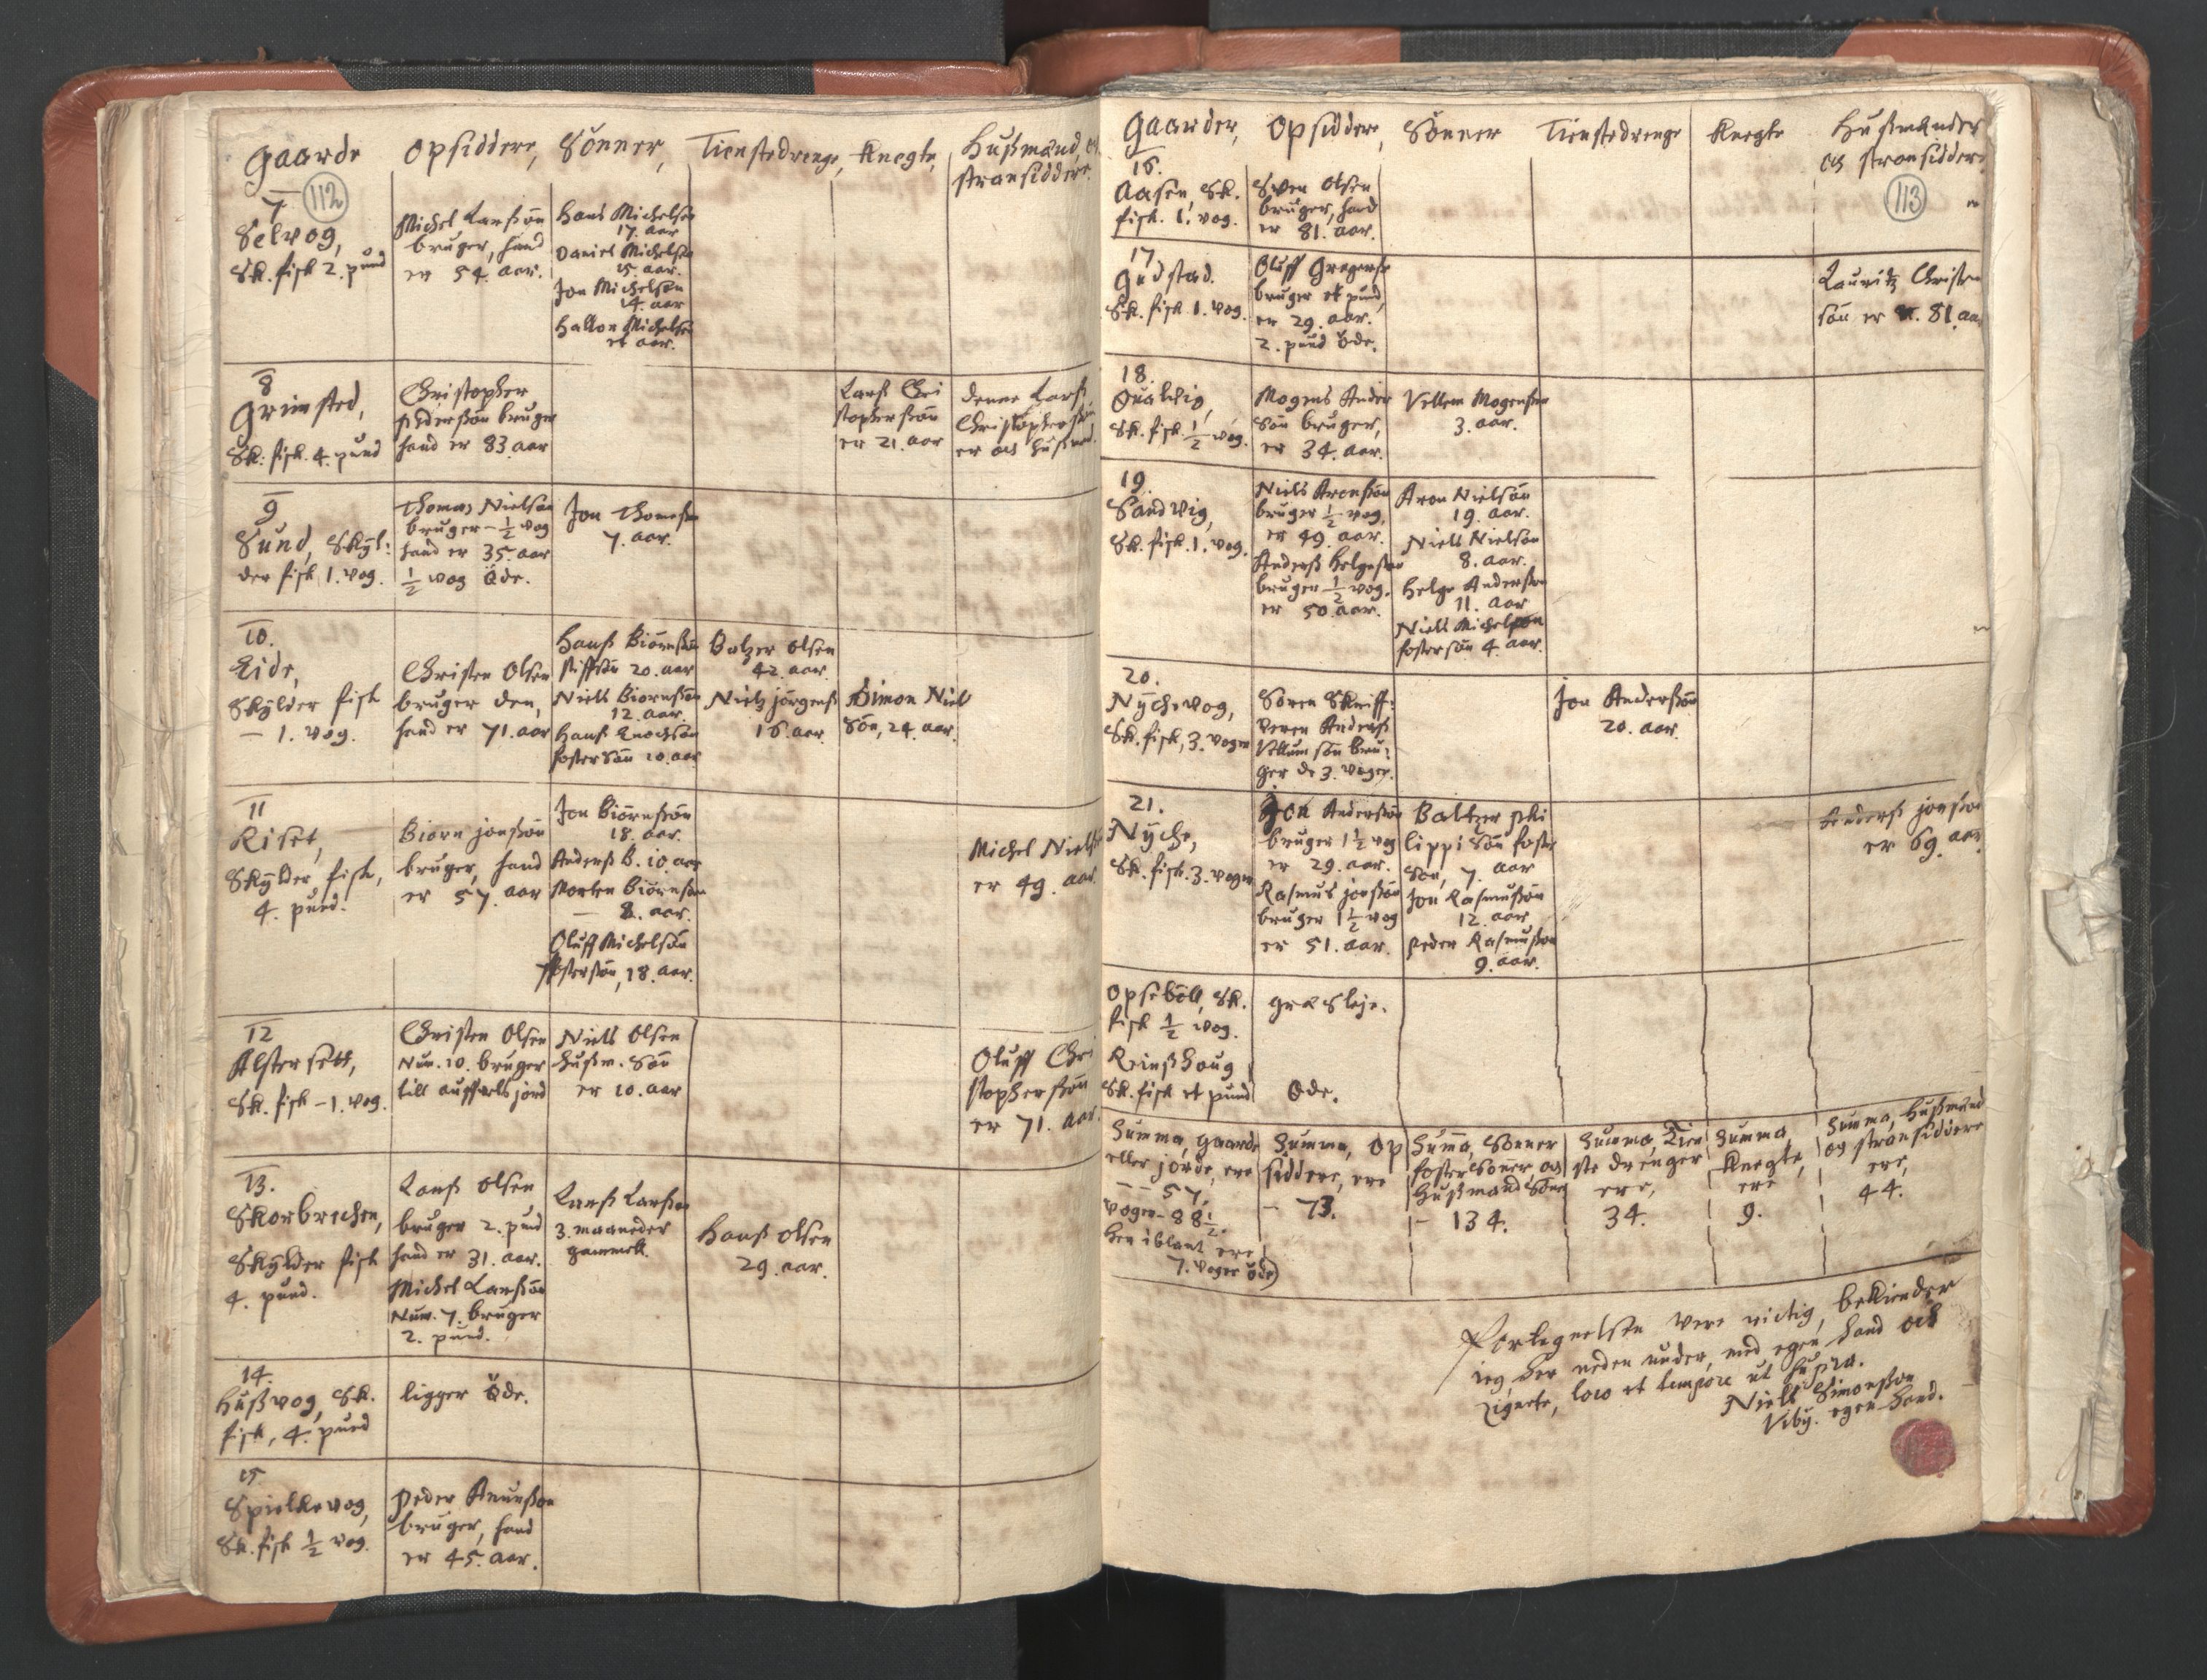 Gaarde
Opsiddere,
Sönner,
Tienstedrenge,
Knegte,
Hußmænd, och
stransiddere.
112
7
Selvog,
Sk. fisk 2. pund
Michel Larßön
bruger, hand
er 54. aar.
Hans Michelsen
17. aar
Daniel Michelsen
15. aar.
Jon Michelsön
14. aar
Hallon Michelsen
et aar.
8
Grimsted,
Sk: fisk. 4. pund
Christopher
Pederßön bruger
hand er 83. aar
Larß Chri
stopherßön
er 21. aar
denne Larß
Christopherßön
er och hußmand.
9
Sund, Skÿl:
der fisk 1. vog.
Thomas Nielsön
bruger - 1/2 vog
hand er 35. aar
1/2 vog Öde.
Jon Thomeßen
7. aar.
10.
Eide,
Skÿlder fisk
- 1. vog.
Christen Olsen
bruger den,
hand er 71. aar
Hanß Biörnßön
stiffsön 20. aar
Niels Biörnßön
12. aar.
Hanß Enochsön
fostersön 10. aar
Balzer Olsen
42. aar.
Nielz jörgenß
16. aar.
Simon Niel
sön, 24. aar.
11
Riset,
Skÿlder fisk,
4. pund.
Biörn jonßön
bruger, hand
er 57. aar
Jon Biörnßön
18. aar.
Anderß B. 10 aar
Morten Biörnßøn
- 8. aar.
Oluff Michelsön
fostersön, 18. aar.
Michel Nielßön
er 49. aar.
12
Alstersett,
Sk. fisk - 1. vog.
Christen Olsen
Num. 10. bruger
till auffvels jord
Niels Olsen
hußm. Sön
er 10. aar
Oluff Chri
stopherßön
er 71. aar.
13.
Skorbrechen,
Skÿlder fisk
4. pund.
Larß Olsen
bruger 2. pund
hand er 31. aar.
Michel Larßön
Num. 7. bruger
2. pund.
Larß Larßøn
3. maaneder
gammell.
Hanß Olsen
29. aar.
14.
Hußvog, Sk.
fisk, 4. pund
ligger Öde.
15
Spielkevog,
Sk. fisk 1/2 vog.
Peder Amunßøn
bruger, hand
er 45. aar.
Gaarder,
Opsiddere,
Sönner
Tienstedrenge
Knegte
Hußmænder
och stransiddere
113
16.
Aasen, Sk.
fisk. 1. vog.
Sven Olsen
bruger, hand
er 81. aar.
17.
Gudstad.
Sk. fisk 1. vog.
Oluff Gregerß
bruger et pund,
er 29. aar.
2. pund Öde.
Lauridz Christen
sön er 81. aar
18.
Qualvig,
Sk. fisk 1/2 vog.
Mogens Ander
sön bruger,
er 34. aar.
Villem Mogensen
3. aar.
19.
Sandvig,
Sk. fisk. 1. vog.
Niels Aronßön
bruger 1/2 vog,
er 49. aar.
Anderß Helgeßøn
bruger 1/2 vog.
er 50. aar.
Aron Nielsön
19. aar.
Niels Nielsön
8. aar.
Helge Anderßen
11. aar
Niels Michelsøn
fostersön 4. aar.
20.
Nÿchevog,
Sk. fisk, 3. voger
Sören Skriff:
veren Anderß
Villum sön bru:
ger de 3. voger.
Jon Anderßön
20. aar.
21.
Nÿche,
Sk. fisk. 3. voger
Jon Anderßön
bruger 1 1/2 vog
er 29. aar.
Rasmus jonßön
bruger 1 1/2 vog
er 51. aar.
Baltzer Phi
lippi Sön foster
Sön, 7. aar
Jon Rasmußön
12. aar
Peder Rasmußøn
9. aar.
Anderß jonßøn
er 69. aar
Opseböll, Sk.
fisk 1/2 vog.
græsleje.
Reinßhoug
Sk. fisk et pund
Öde.
Summa, Gaarde
eller jorde, ere
- - 57.
voger - 88 1/2.
her iblant ere
7. voger öde
Summa, Op
siddere, ere
- 73.
Summa, Sönner
fostersönner, og
Hußmand Söner
- 134.
Summa, Tien
ste drenger
ere,
34.
Summa,
Knegte,
ere
9.
Summa, Hußmænd
og stransiddere
ere,
44.
Fortegnelsen være rictig, bekiender
ieg her neden under, med egen hand och
Zignete, loco et tempore ut supra.
Niels Simonßøn
Vibÿ. egen hand.